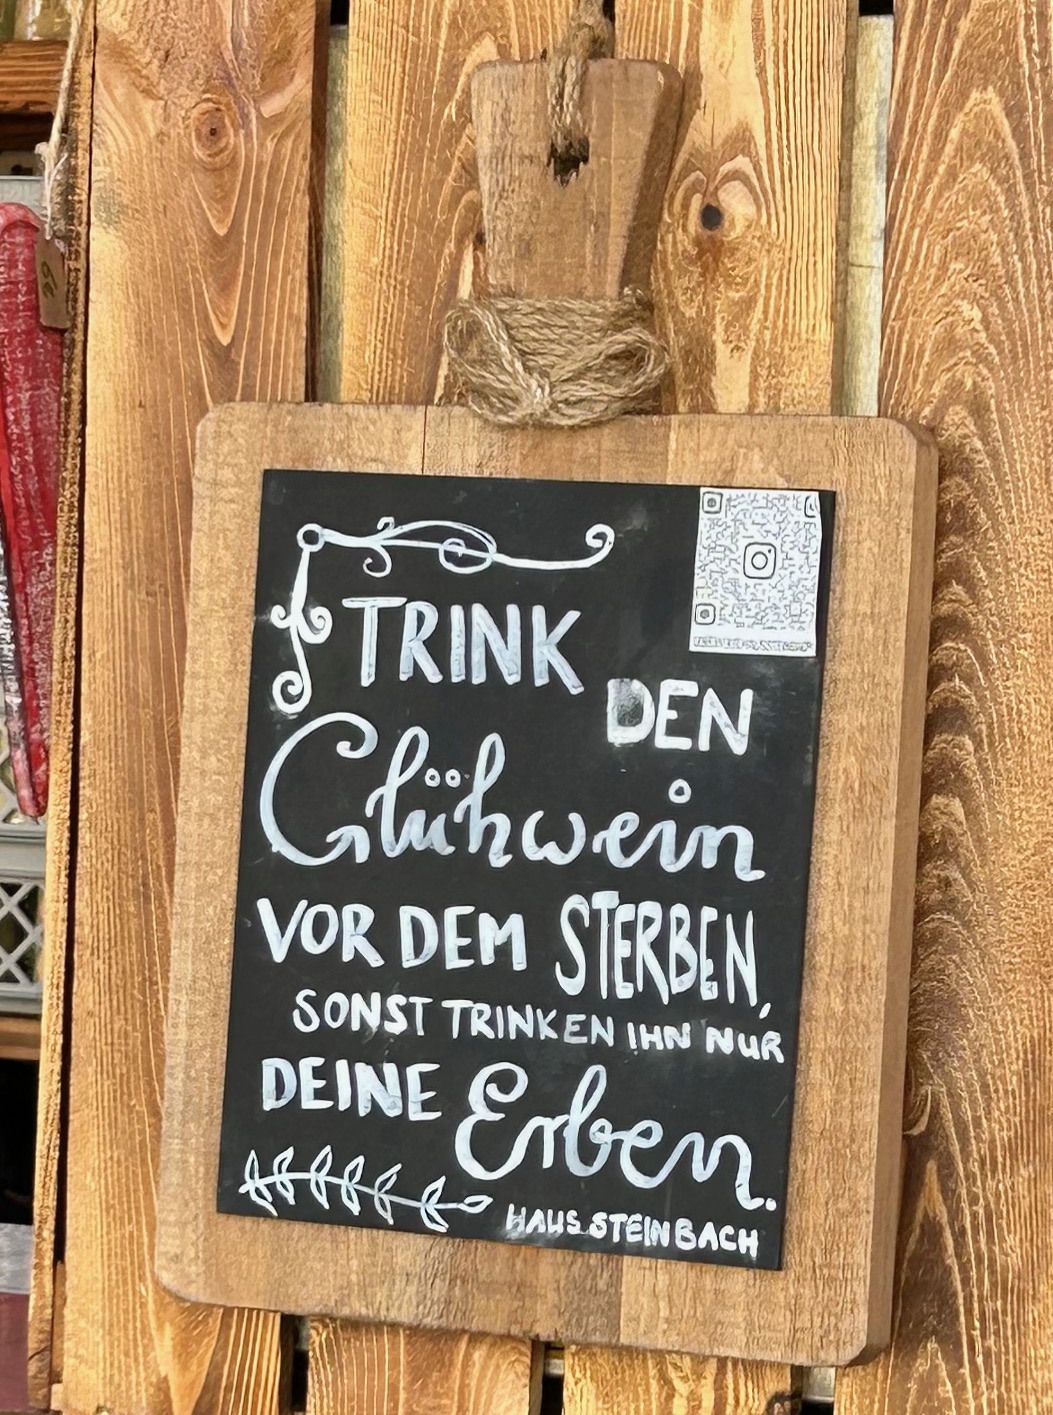 TRINK
DEN
Glühwein
VOR DEM STERBEN,
SONST TRINKEN IHN NUR
DEINE Erben.
HAUS STEINBACH